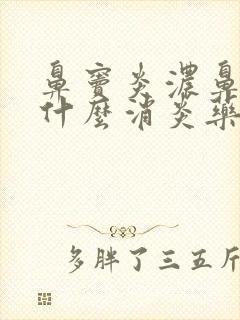 鼻窦炎浓鼻
什麼消炎藥
多胖了三五斤